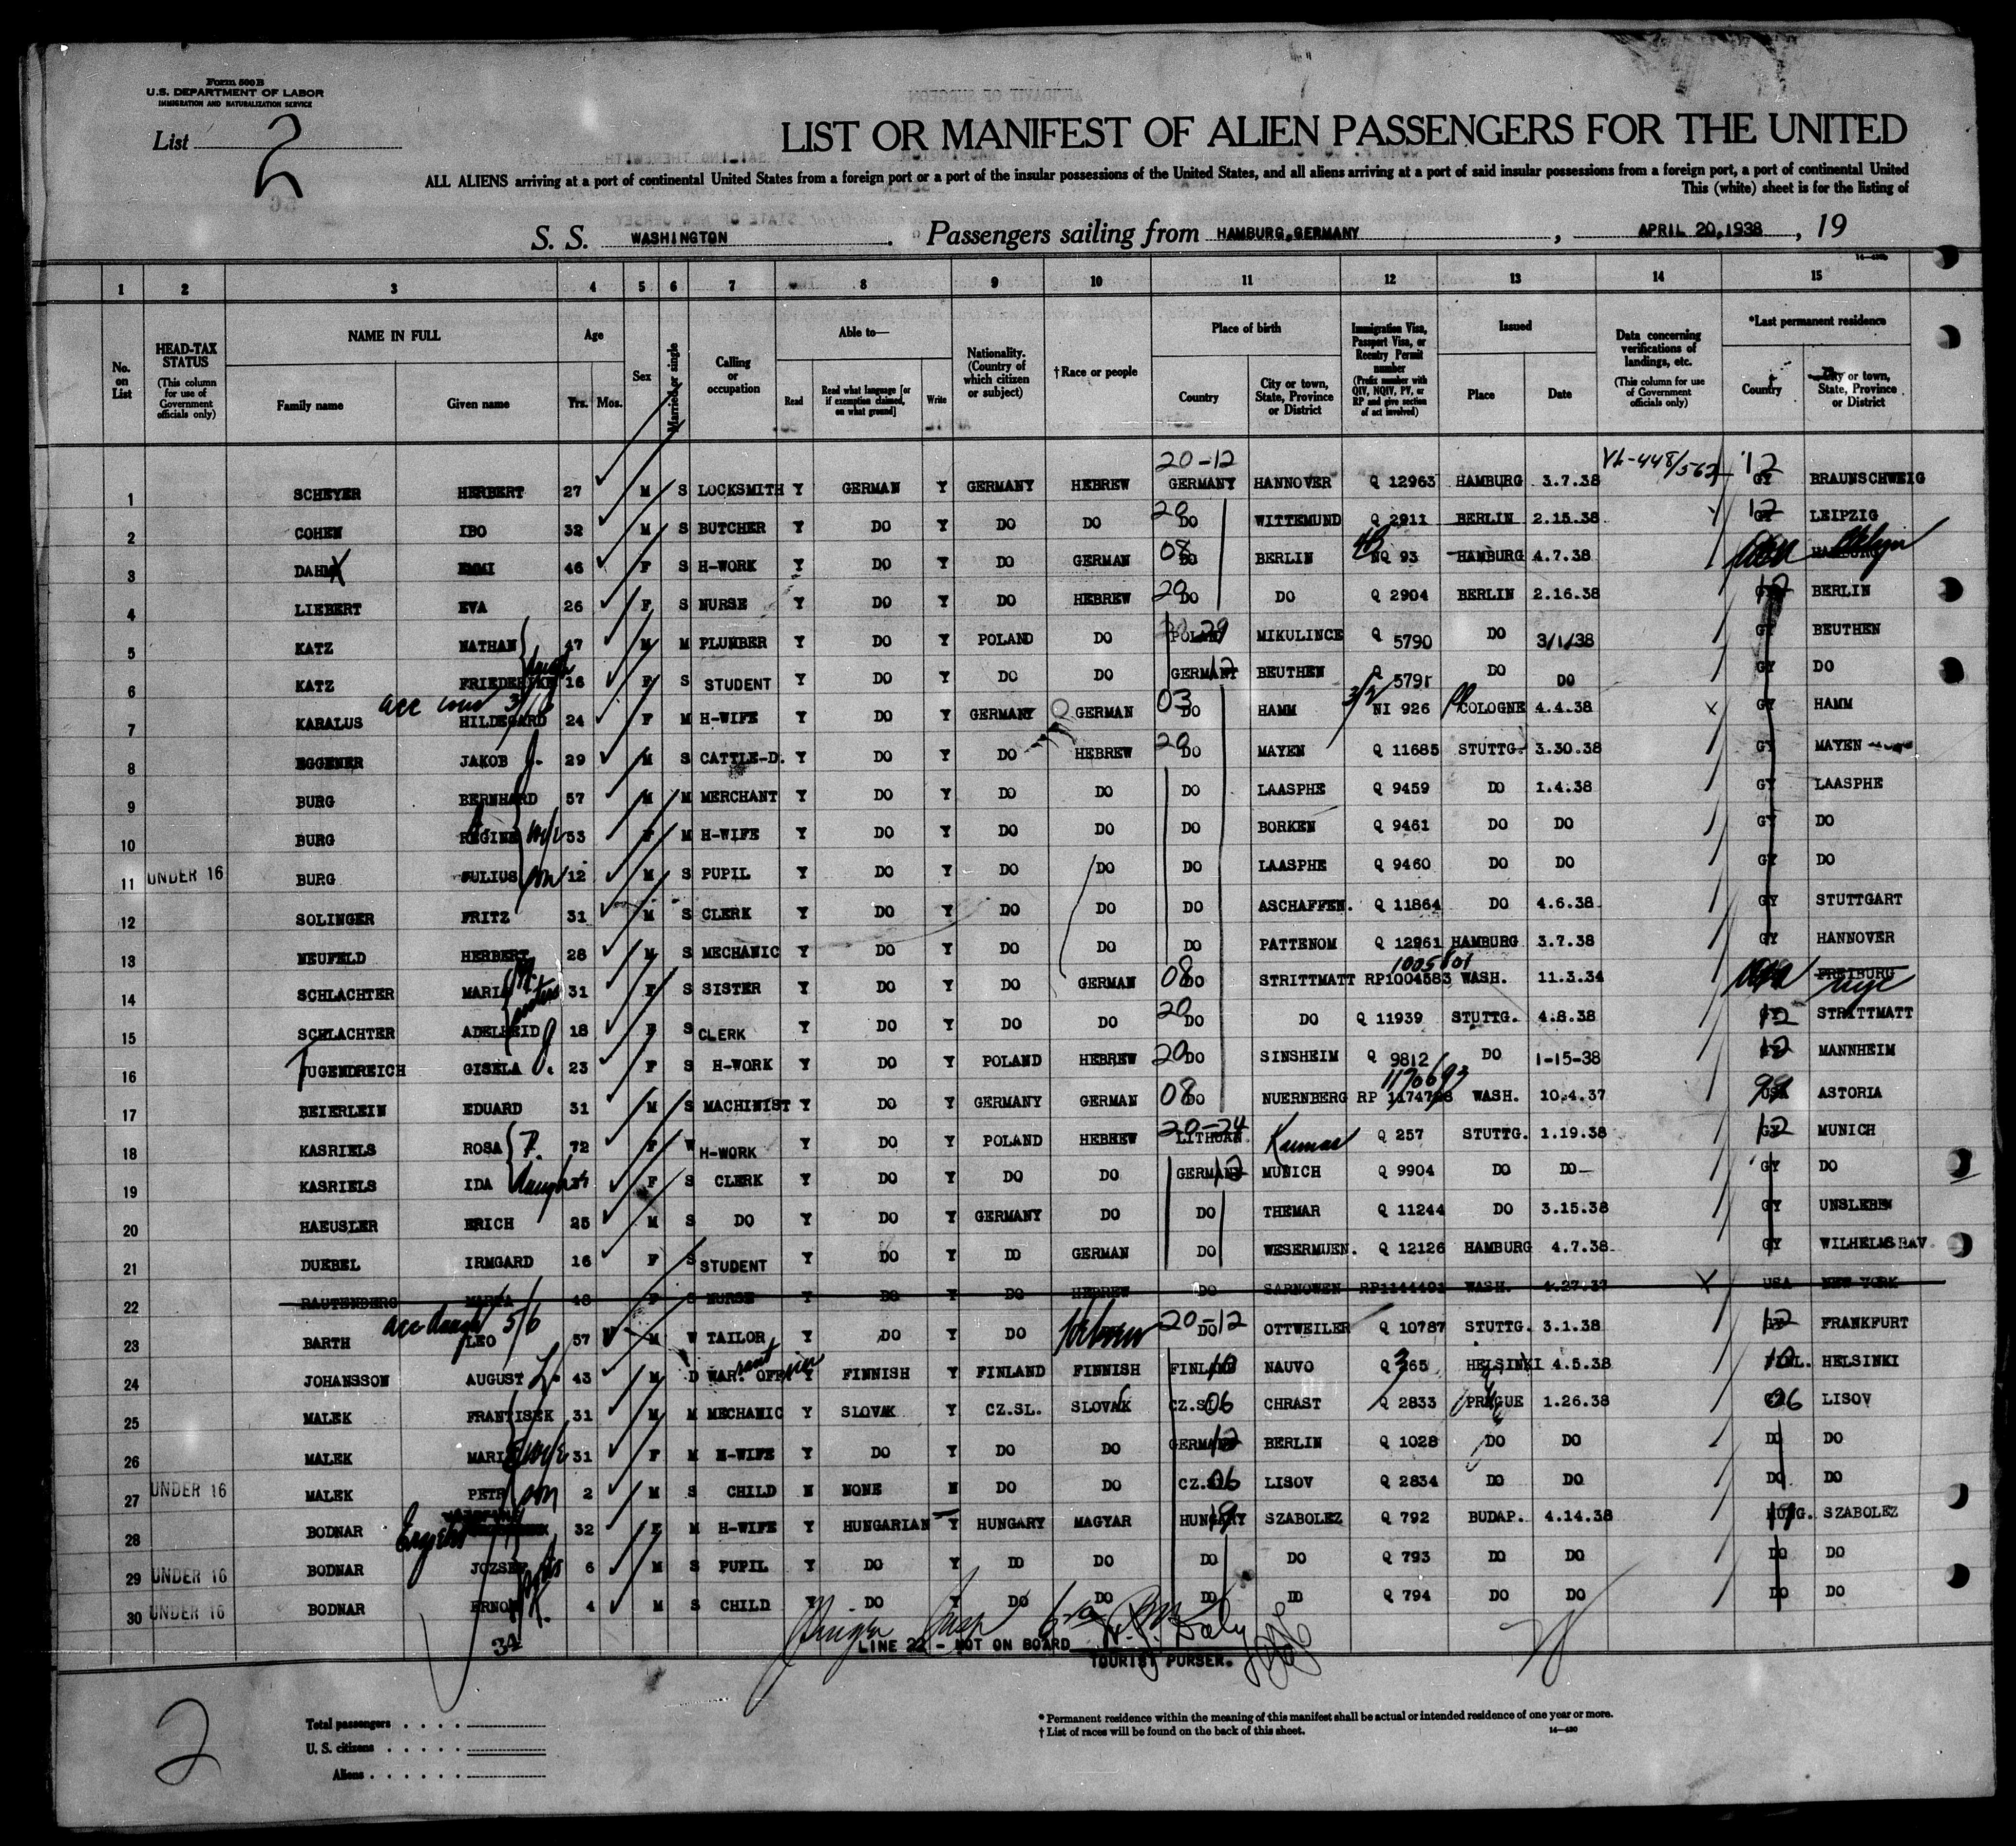 Form 500 B
U.S. DEPARTMENT OF LABOR
IMMIGRATION AND NATURALIZATION SERVICE
List 2
LIST OR MANIFEST OF ALIEN PASSENGERS FOR THE UNITED
ALL ALIENS arriving at a port of continental United States from a foreign port or a port of the insular possessions of the United States, and all aliens arriving at a port of said insular possessions from a foreign port, a port of continental United
This (white) sheet is for the listing of
S. S. WASHINGTON Passengers sailing from HAMBURG, GERMANY , APRIL 20, 1938 , 19
1 2 3 4 5 6 7 8 9 10 11 12 13 14 15
No. on List
HEAD-TAX STATUS (This column for use of Government officials only)
NAME IN FULL
Family name Given name
Age Yrs. Mos.
Sex
Married or single
Calling or occupation
Able to—
Read Read what language [or if exemption claimed, on what ground] Write
Nationality. (Country of which citizen or subject)
† Race or people
Place of birth
Country City or town, State, Province or District
Immigration Visa, Passport Visa, or Reentry Permit number (Prefix number with QIV, NQIV, PV, or RP and give section of act involved)
Issued
Place Date
Data concerning verifications of landings, etc. (This column for use of Government officials only)
*Last permanent residence
Country City or town, State, Province or District
20-12
1 SCHEYER HERBERT 27 M S LOCKSMITH Y GERMAN Y GERMANY HEBREW GERMANY HANNOVER Q 12963 HAMBURG 3.7.38 12 GY BRAUNSCHWEIG
2 COHEN IBO 32 M S BUTCHER Y DO Y DO DO 20 DO WITTEMUND Q 2911 BERLIN 2.15.38 12 GY LEIPZIG
3 DAHM EMMI 46 F S H-WORK Y DO Y DO GERMAN 08 DO BERLIN NQ 93 HAMBURG 4.7.38 HAMBURG
4 LIEBERT EVA 26 F S NURSE Y DO Y DO HEBREW 20 DO DO Q 2904 BERLIN 2.16.38 12 GY BERLIN
5 KATZ NATHAN 47 M M PLUMBER Y DO Y POLAND DO POLAND MIKULINCE Q 5790 DO 3/1/38 GY BEUTHEN
6 KATZ FRIEDERIKE daugh 16 F S STUDENT Y DO Y DO DO GERMANY 12 BEUTHEN Q 5791 DO DO GY DO
7 KARALUS HILDEGARD 24 F M H-WIFE Y DO Y GERMANY GERMAN 03 DO HAMM 3/2 NI 926 COLOGNE 4.4.38 GY HAMM
8 EGGENER JAKOB J. 29 M S CATTLE-D. Y DO Y DO HEBREW 20 DO MAYEN Q 11685 STUTTG. 3.30.38 GY MAYEN
9 BURG BERNHARD 57 M M MERCHANT Y DO Y DO DO DO LAASPHE Q 9459 DO 1.4.38 GY LAASPHE
10 BURG REGINE wife 53 F M H-WIFE Y DO Y DO DO DO BORKEN Q 9461 DO DO GY DO
11 UNDER 16 BURG JULIUS son 12 M S PUPIL Y DO Y DO DO DO LAASPHE Q 9460 DO DO GY DO
12 SOLINGER FRITZ 31 M S CLERK Y DO Y DO DO DO ASCHAFFEN. Q 11864 DO 4.6.38 GY STUTTGART
13 NEUFELD HERBERT 28 M S MECHANIC Y DO Y DO DO DO PATTENOM Q 12961 HAMBURG 3.7.38 GY HANNOVER
14 SCHLACHTER MARIA sisters 31 F S SISTER Y DO Y DO GERMAN 08 DO STRITTMATT RP1004583 WASH. 11.3.34 FREIBURG
15 SCHLACHTER ADELHEID 18 F S CLERK Y DO Y DO DO 20 DO DO Q 11939 STUTTG. 4.8.38 12 STRITTMATT
16 JUGENDREICH GISELA 23 F S H-WORK Y DO Y POLAND HEBREW 20 DO SINSHEIM Q 9812 DO 1-15-38 12 MANNHEIM
1170693
17 BEIERLEIN EDUARD 31 M S MACHINIST Y DO Y GERMANY GERMAN 08 DO NUERNBERG RP WASH. 10.4.37 99 USA ASTORIA
18 KASRIELS ROSA F. 72 F W H-WORK Y DO Y POLAND HEBREW 20-24 Q 257 STUTTG. 1.19.38 12 GY MUNICH
19 KASRIELS IDA daugh F S CLERK Y DO Y DO DO GERMANY 12 MUNICH Q 9904 DO DO GY DO
20 HAEUSLER ERICH 25 M S DO Y DO Y GERMANY DO DO THEMAR Q 11244 DO 3.15.38 GY UNSLEBEN
21 DUEBEL IRMGARD 16 F S STUDENT Y DO Y DO GERMAN DO WESERMUEN. Q 12126 HAMBURG 4.7.38 GY WILHELMSHAV
22 RAUTENBERG MARTA 48 F S NURSE Y DO Y DO HEBREW DO SARNOWEN RP1144401 WASH. 4.27.37 X USA NEW YORK
acc daugh 5/6
23 BARTH LEO 57 M W TAILOR Y DO Y DO Hebrew 20-12 DO OTTWEILER Q 10787 STUTTG. 3.1.38 12 GY FRANKFURT
24 JOHANSSON AUGUST L. 43 M D WAR. OFF. Y FINNISH Y FINLAND FINNISH FINLAND NAUVO Q 365 HELSINKI 4.5.38 HELSINKI
25 MALEK FRANTISEK 31 M M MECHANIC Y SLOVAK Y CZ.SL. SLOVAK CZ.SL. 06 CHRAST Q 2833 PRAGUE 1.26.38 06 LISOV
26 MALEK MARIE wife 31 F M H-WIFE Y DO Y DO DO GERMANY 12 BERLIN Q 1028 DO DO DO DO
27 UNDER 16 MALEK PETR son 2 M S CHILD N NONE N DO DO CZ.SL. 06 LISOV Q 2834 DO DO DO DO
28 BODNAR 32 F M H-WIFE Y HUNGARIAN Y HUNGARY MAGYAR HUNGARY 19 SZABOLEZ Q 792 BUDAP. 4.14.38 HUNG. 19 SZABOLEZ
29 UNDER 16 BODNAR JOZSEF 6 M S PUPIL Y DO Y DO DO DO DO Q 793 DO DO DO DO
30 UNDER 16 BODNAR ERNO K. 4 M S CHILD Y DO Y DO DO DO DO Q 794 DO DO DO DO
34
LINE 22 - NOT ON BOARD
Daly
TOURIST PURSER.
2
Total passengers
U. S. citizens
Aliens
* Permanent residence within the meaning of this manifest shall be actual or intended residence of one year or more.
† List of races will be found on the back of this sheet.
14—430